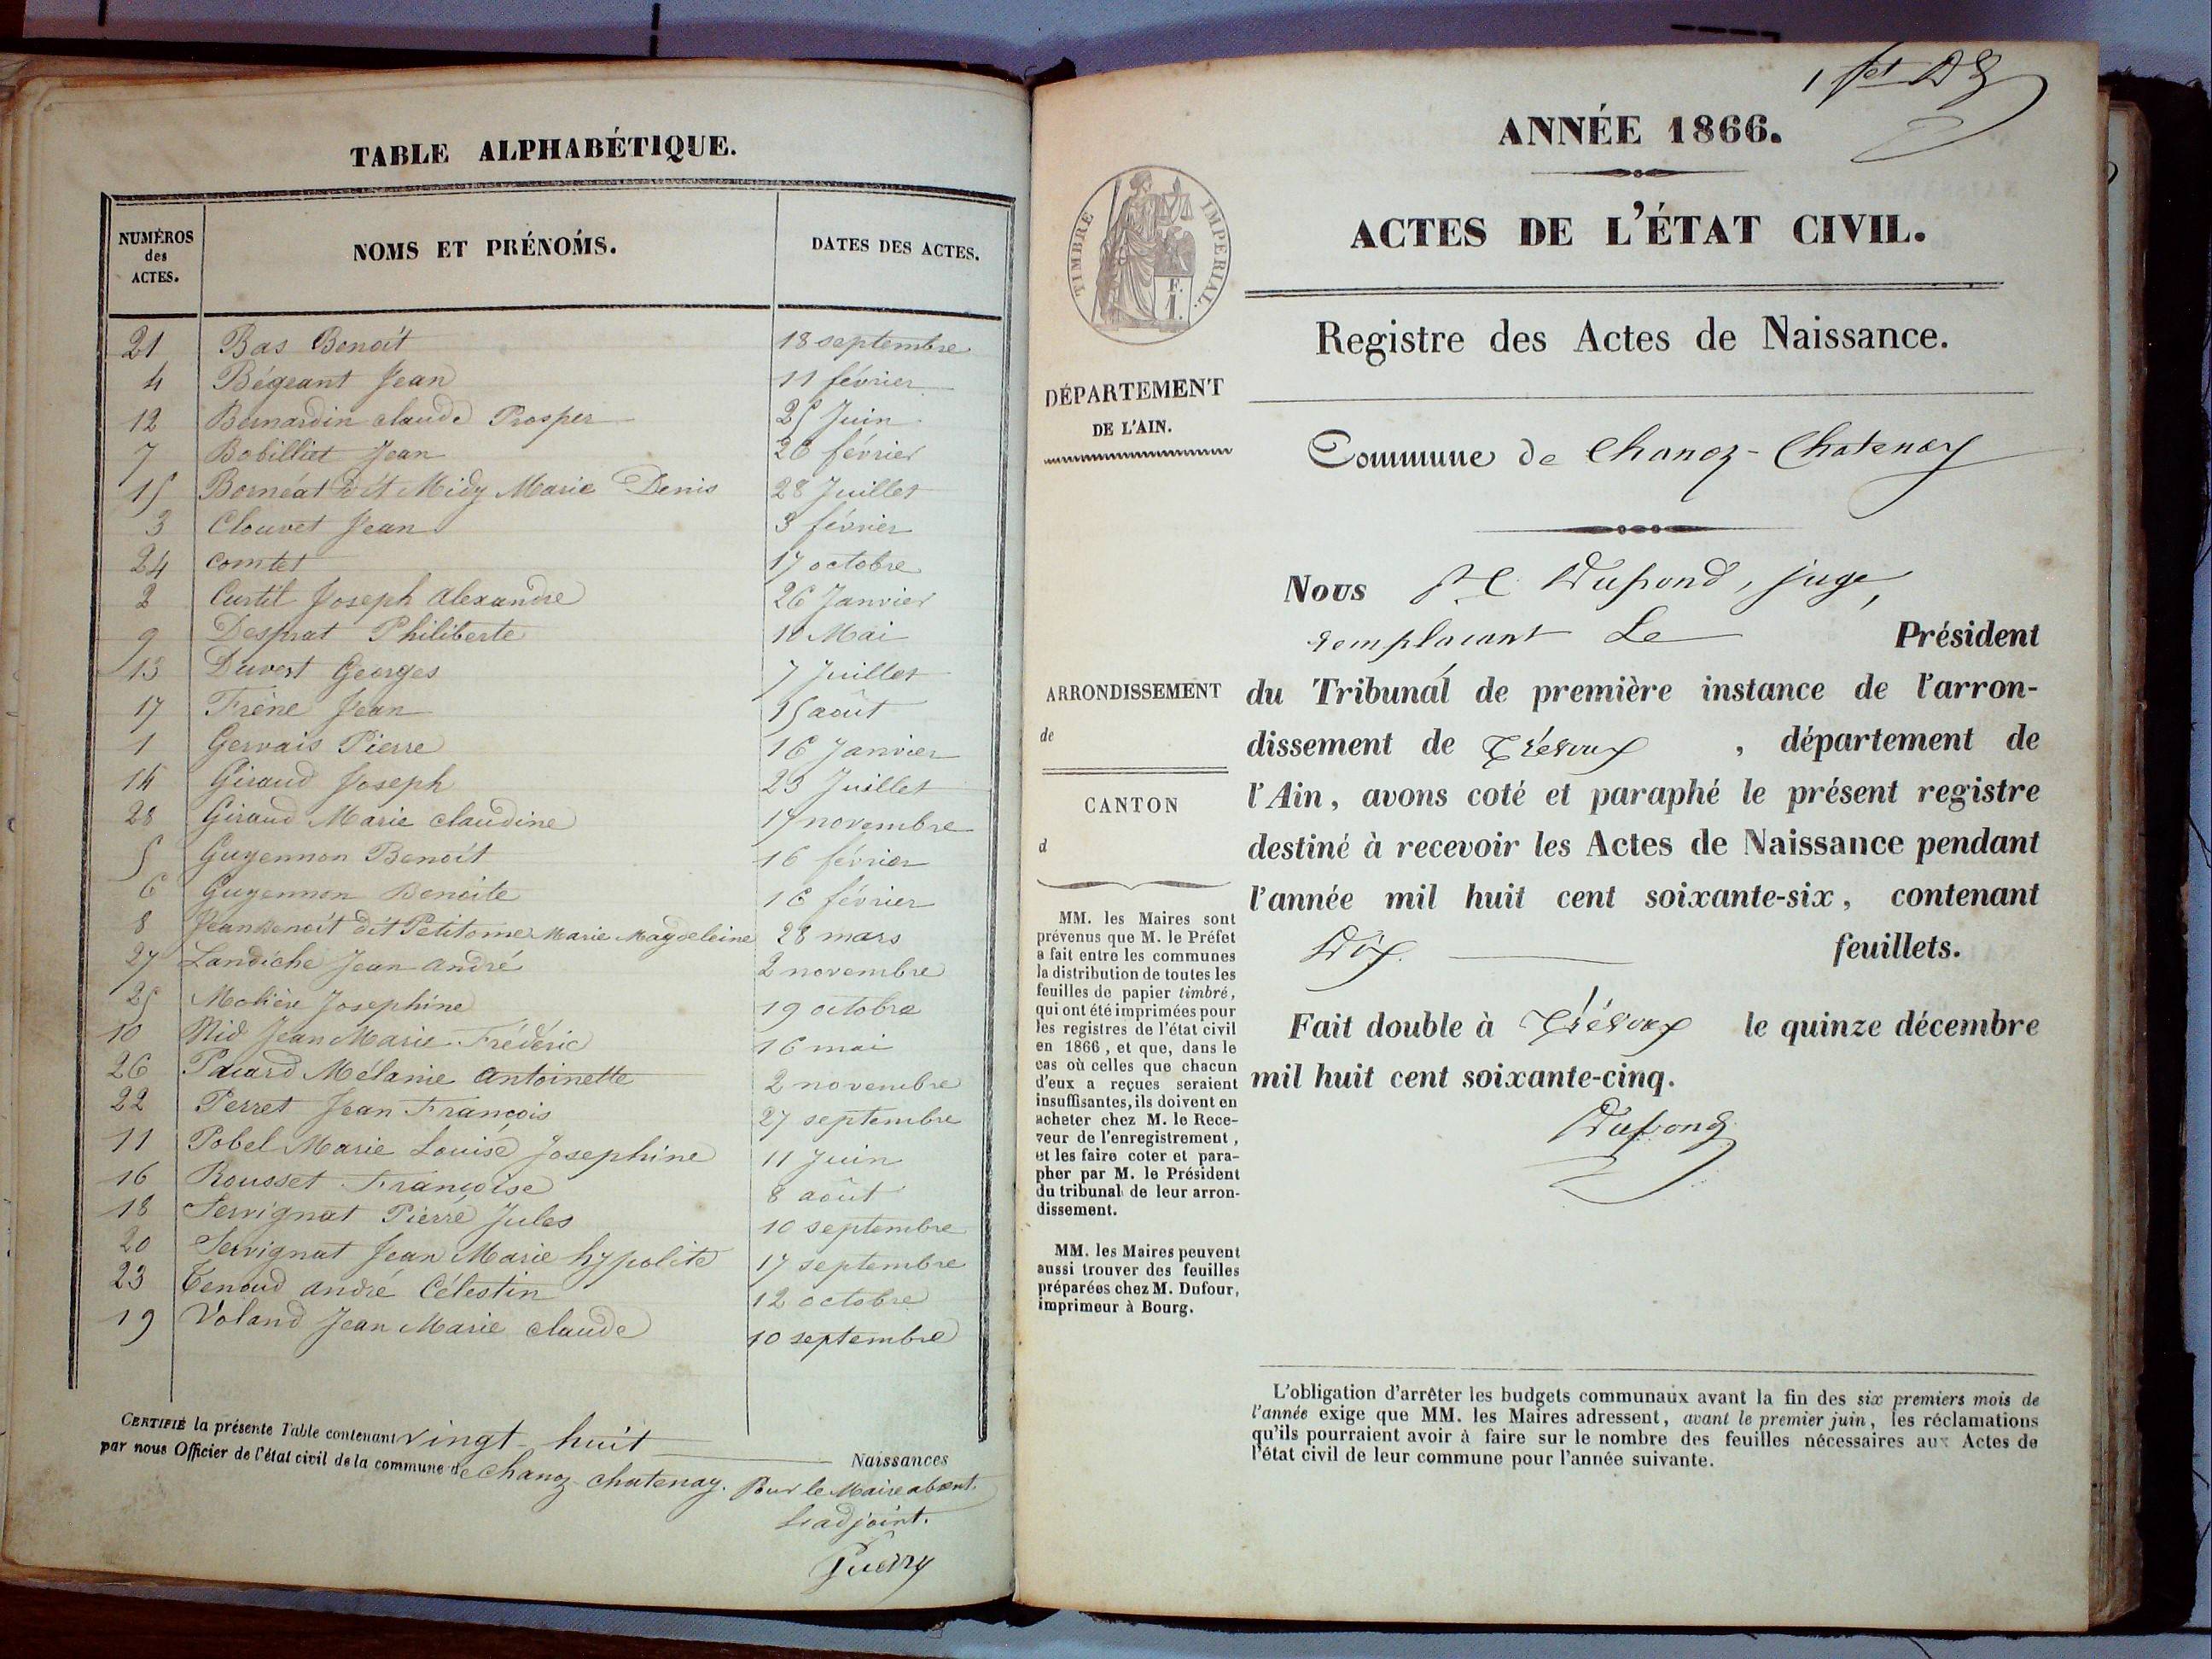 TABLE ALPHABÉTIQUE.
NUMÉROS des ACTES. NOMS ET PRÉNOMS. DATES DES ACTES.
21 Bas Benoît 18 septembre
4 Bégeant Jean 11 février
12 Bernardin claude Prosper 25 Juin
7 Bobilliet Jean 26 février
15 Bornéat dit Midy Marie Denis 28 Juillet
3 Clouvet Jean 3 février
24 comtet 17 octobre
2 Curtil Joseph Alexandre 26 Janvier
9 Desprat Philiberte 10 Mai
13 Duvert Georges 7 Juillet
17 Frène Jean 15 août
1 Gervais Pierre 16 Janvier
14 Giraud Joseph 23 Juillet
28 Giraud Marie claudine 15 novembre
5 Guyennon Benoît 16 février
6 Guyennon Benoite 16 février
8 Jeanbenoît dit Petitome Marie Magdeleine 28 mars
27 Landiche Jean andré 2 novembre
25 Molière Josephine 19 octobre
10 Nid Jean Marie Frédéric 16 mai
26 Pacard Mélanie antoinette 2 novembre
22 Perret Jean François 27 septembre
11 Pobel Marie Louise Josephine 11 Juin
16 Rousset Françoise 8 août
18 Servignat Pierre Jules 10 septembre
20 Servignat Jean Marie hypolite 17 septembre
23 Tenoud andré Célestin 12 octobre
19 Voland Jean Marie claude 10 septembre
CERTIFIÉ la présente Table contenant vingt-huit Naissances
par nous Officier de l'état civil de la commune de Chanoz-chatenay. Pour le Maire absent.
L'adjoint.
1 fet
ANNÉE 1866.
ACTES DE L'ÉTAT CIVIL.
TIMBRE IMPERIAL.
F.
1.
Registre des Actes de Naissance.
DÉPARTEMENT
DE L'AIN.
Commune de Chanoz-Chatenay
Nous Dupond, juge,
remplacant Le Président
ARRONDISSEMENT
de
CANTON
d
du Tribunal de première instance de l'arron-
dissement de Trévoux, département de
l'Ain, avons coté et paraphé le présent registre
destiné à recevoir les Actes de Naissance pendant
l'année mil huit cent soixante-six, contenant
Dix feuillets.
Fait double à Trévoux le quinze décembre
mil huit cent soixante-cinq.
Dupond
MM. les Maires sont
prévenus que M. le Préfet
a fait entre les communes
la distribution de toutes les
feuilles de papier timbré,
qui ont été imprimées pour
les registres de l'état civil
en 1866, et que, dans le
cas où celles que chacun
d'eux a reçues seraient
insuffisantes, ils doivent en
acheter chez M. le Rece-
veur de l'enregistrement,
et les faire coter et para-
pher par M. le Président
du tribunal de leur arron-
dissement.
MM. les Maires peuvent
aussi trouver des feuilles
préparées chez M. Dufour,
imprimeur à Bourg.
L'obligation d'arrêter les budgets communaux avant la fin des six premiers mois de
l'année exige que MM. les Maires adressent, avant le premier juin, les réclamations
qu'ils pourraient avoir à faire sur le nombre des feuilles nécessaires aux Actes de
l'état civil de leur commune pour l'année suivante.